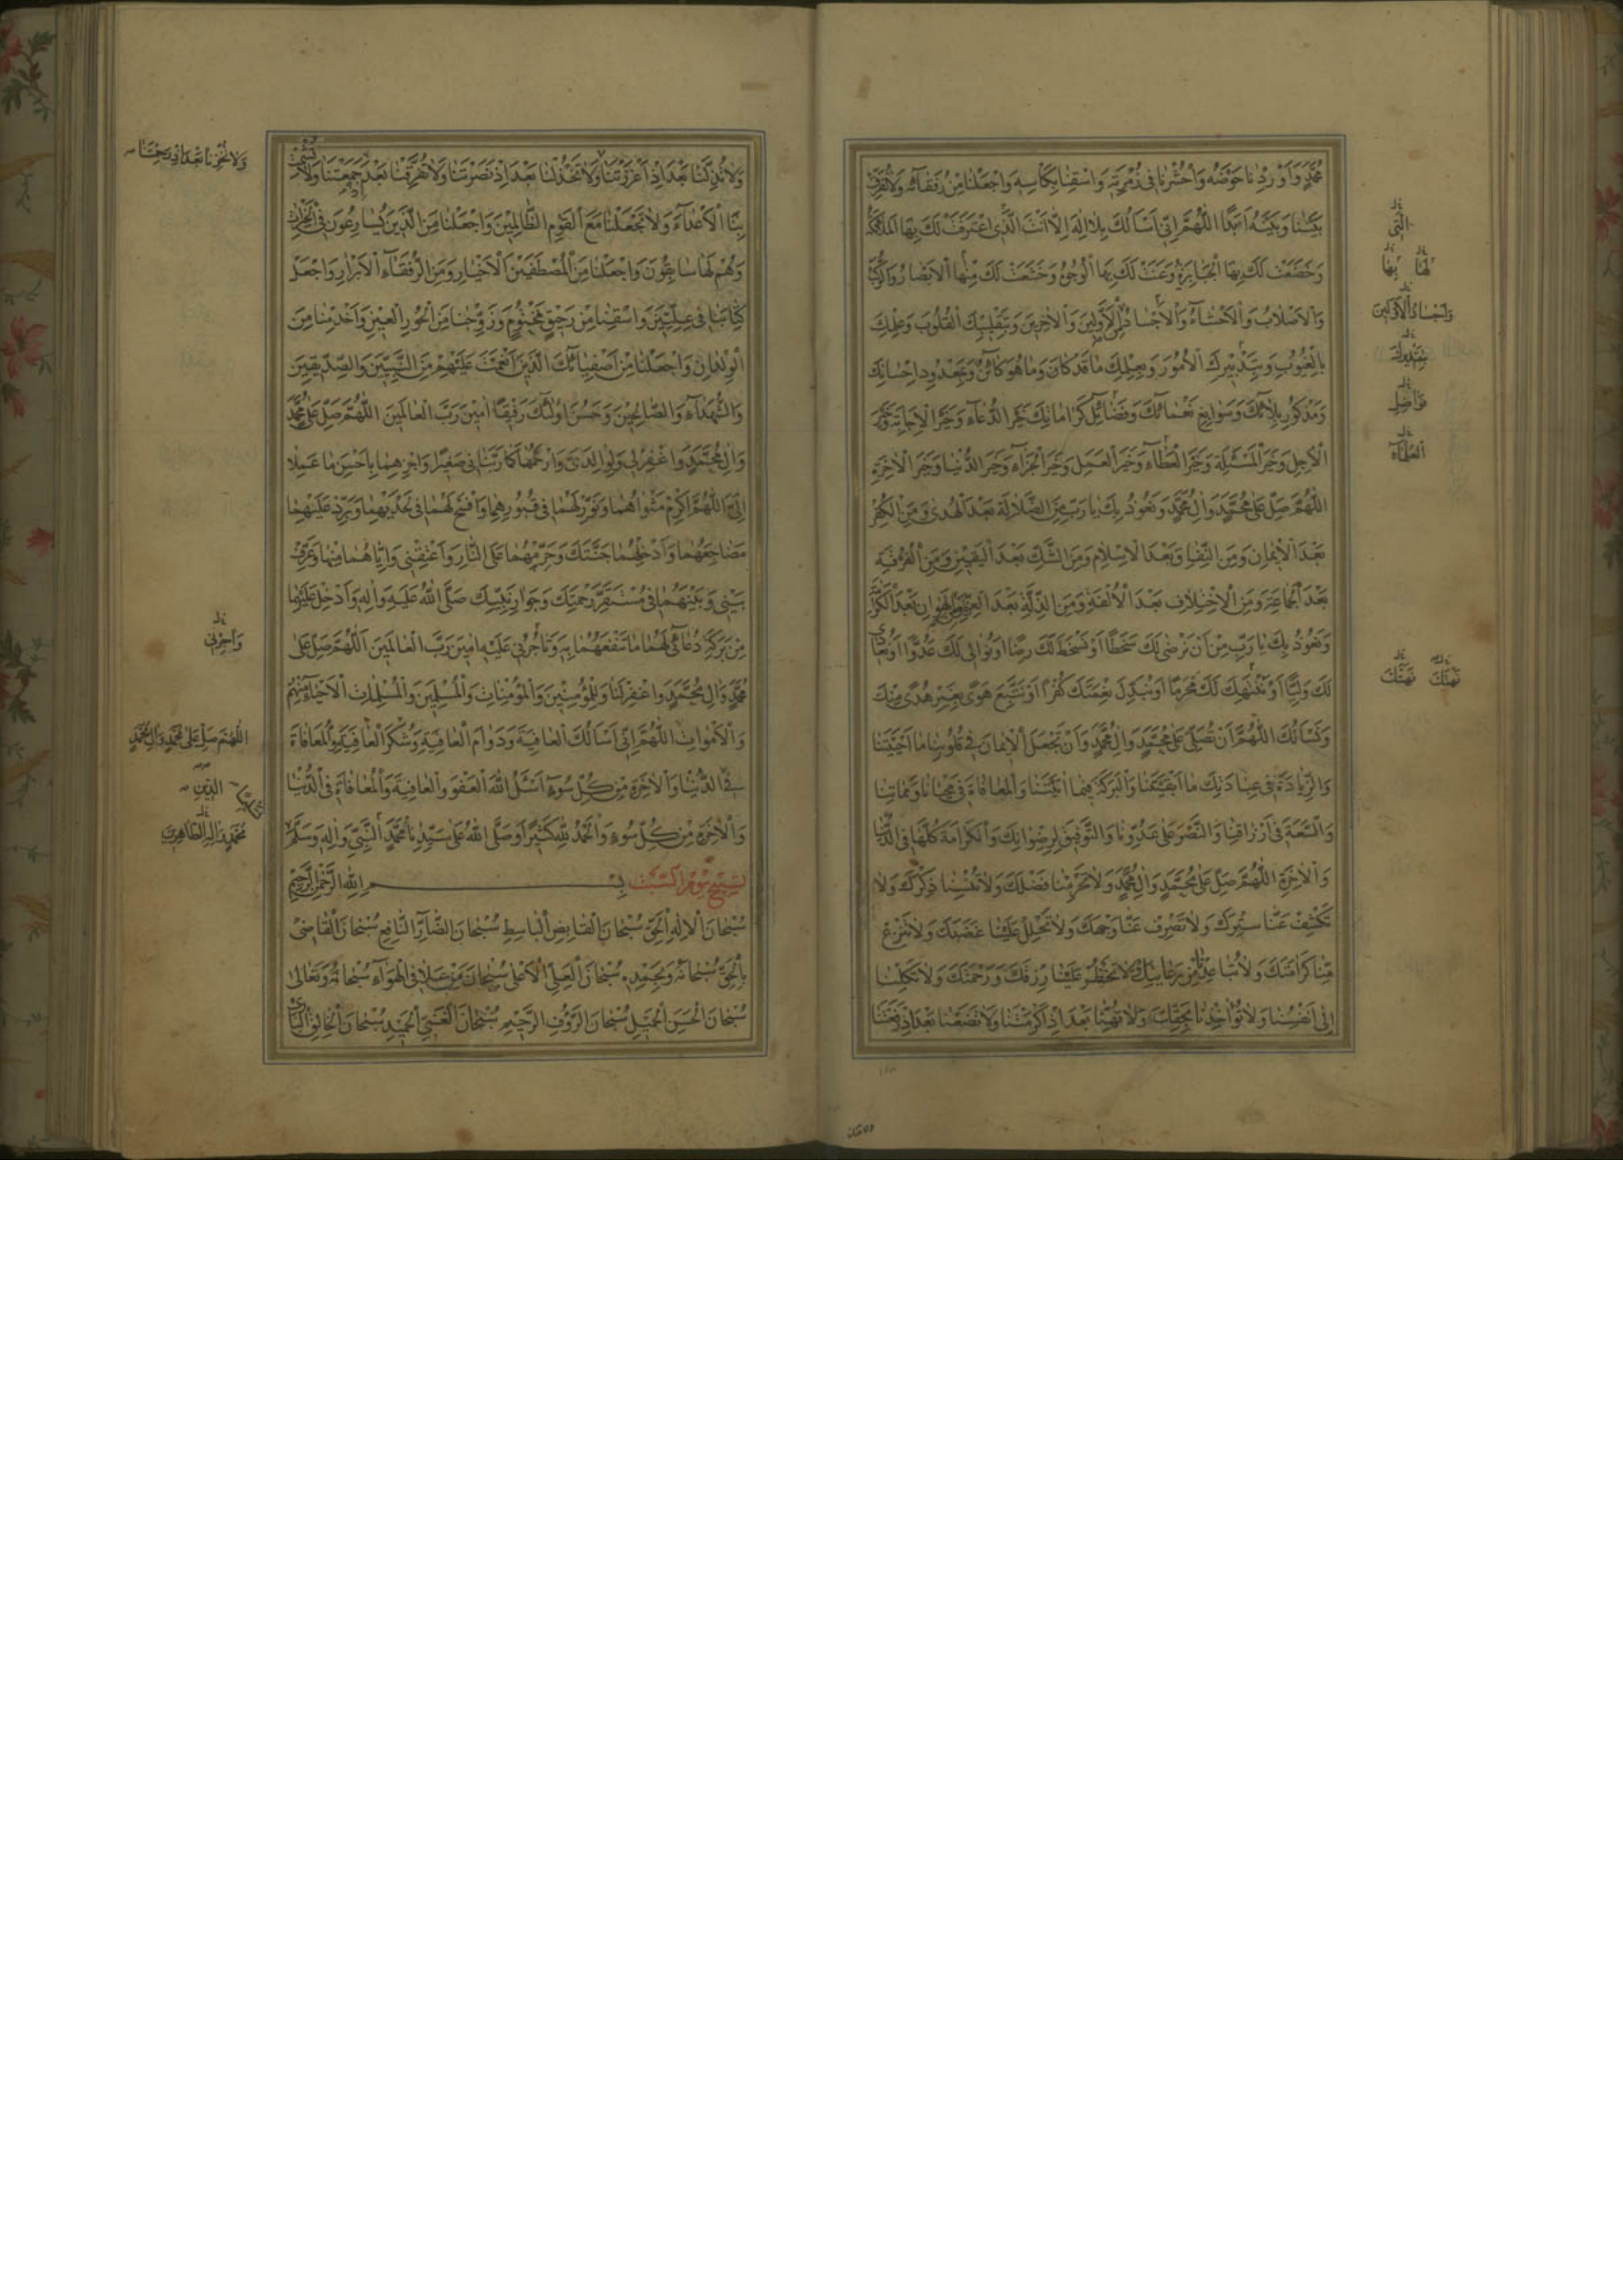 مُحَمَّدٍ وَاَوْرِدْنا حَوْضَهُ وَاحْشُرْنا فى زُمْرَتِهِ وَاسْقِنا بِكَاْسِهِ وَاجْعَلْنا مِنْ رُفَقآئِهِ وَلا تُفَرِّقْ
بَيْنَنا وَبَيْنَهُ اَبَدًا اَللّٰهُمَّ اِنّى اَسْاَلُكَ بِلا اِلٰهَ اِلّا اَنْتَ الَّذى اعْتَرَفَتْ لَكَ بِهَا الْمَلآئِكَةُ
وَخَضَعَتْ لَكَ بِهَا الْجَبابِرَةُ وَعَنَتْ لَكَ بِهَا الْوُجُوهُ وَخَشَعَتْ لَكَ مِنْهَا الْاَبْصارُ وَالرُّكَبُ
وَالْاَصْلابُ وَالْاَحْشآءُ وَالْاَجْسادُ الْاَوَّلينَ وَالْاخِرينَ وَبِتَقْليبِكَ الْقُلُوبَ وَعِلْمِكَ
بِالْغُيُوبِ وَبِتَدْبيرِكَ الْاُمُورَ وَبِعِلْمِكَ ما قَدْ كانَ وَما هُوَ كآئِنٌ وَبِمَعْدُودِ اِحْسانِكَ
وَمَذْكُورِ بَلآئِكَ وَسَوابِغِ نَعْمآئِكَ وَفَضآئِلِ كَراماتِكَ خَيْرَ الدُّعآءِ وَخَيْرَ الْاِجابَةِ وَخَيْرَ
الْاَجَلِ وَخَيْرَ الْمَسْئَلَةِ وَخَيْرَ الْعَطآءِ وَخَيْرَ الْعَمَلِ وَخَيْرَ الْجَزآءِ وَخَيْرَ الدُّنْيا وَخَيْرَ الْاخِرَةِ
اَللّٰهُمَّ صَلِّ عَلى مُحَمَّدٍ وَالِ مُحَمَّدٍ وَنَعُوذُ بِكَ يا رَبِّ مِنَ الضَّلالَةِ بَعْدَ الْهُدى وَمِنَ الْكُفْرِ
بَعْدَ الْايمانِ وَمِنَ النِّفاقِ بَعْدَ الْاِسْلامِ وَمِنَ الشَّكِّ بَعْدَ الْيَقينِ وَمِنَ الْفُرْقَةِ
بَعْدَ الْجَماعَةِ وَمِنَ الْاِخْتِلافِ بَعْدَ الْاُلْفَةِ وَمِنَ الذِّلَّةِ بَعْدَ الْعِزَّةِ وَمِنَ الْهَوانِ بَعْدَ الْكَرامَةِ
وَنَعُوذُ بِكَ يا رَبِّ مِنْ اَنْ نَرْضى لَكَ سَخَطًا اَوْ نَسْخَطَ لَكَ رِضًا اَوْ نُوالِىَ لَكَ عَدُوًّا اَوْ نُعادِىَ
لَكَ وَلِيًّا اَوْ نَنْتَهِكَ لَكَ مَحْرَمًا اَوْ نُبَدِّلَ نِعْمَتَكَ كُفْرًا اَوْ نَتَّبِعَ هَوًى بِغَيْرِ هُدًى مِنْكَ
وَنَسْاَلُكَ اللّٰهُمَّ اَنْ تُصَلِّىَ عَلى مُحَمَّدٍ وَالِ مُحَمَّدٍ وَاَنْ تَجْعَلَ الْايمانَ فى قُلُوبِنا ما اَحْيَيْتَنا
وَالزِّيادَةَ فى عِبادَتِكَ ما اَبْقَيْتَنا وَالْبَرَكَةَ فيما اتَيْتَنا وَالْمُعافاةَ فى مَحْيانا وَمَماتِنا
وَالسَّعَةَ فى اَرْزاقِنا وَالنَّصْرَ عَلى عَدُوِّنا وَالتَّوْفيقَ لِرِضْوانِكَ وَالْكَرامَةَ كُلَّها فِى الدُّنْيا
وَالْاخِرَةِ اَللّٰهُمَّ صَلِّ عَلى مُحَمَّدٍ وَالِ مُحَمَّدٍ وَلا تَحْرِمْنا فَضْلَكَ وَلا تُنْسِنا ذِكْرَكَ وَلا
تَكْشِفْ عَنّا سِتْرَكَ وَلا تَصْرِفْ عَنّا وَجْهَكَ وَلا تُحْلِلْ عَلَيْنا غَضَبَكَ وَلا تَنْزِعْ
مِنّا كَرامَتَكَ وَلا تُباعِدْنا مِنْ وَلا تَحْظُرْ عَلَيْنا رِزْقَكَ وَرَحْمَتَكَ وَلا تَكِلْنا
اِلى اَنْفُسِنا وَلا تُؤاخِذْنا وَلا تُهِنّا بَعْدَ اِذْ اَكْرَمْتَنا وَلا تَضَعْنا بَعْدَ اِذْ رَفَعْتَنا
الَّتى
لَها بِها
وَاَجْسادُ الْاَوَّلينَ
بِتَدْبيرِكَ
فَواضِلِ
نَهْتِكَ
وَلا تُذِلَّنا بَعْدَ اِذْ اَعْزَزْتَنا وَلا تَخْذُلْنا بَعْدَ اِذْ نَصَرْتَنا وَلا تُفَرِّقْنا بَعْدَ اِذْ جَمَعْتَنا وَلا تُشْمِتْ
بِنَا الْاَعْدآءَ وَلا تَجْعَلْنا مَعَ الْقَوْمِ الظّالِمينَ وَاجْعَلْنا مِنَ الَّذينَ يُسارِعُونَ فِى الْخَيْراتِ
وَهُمْ لَها سابِقُونَ وَاجْعَلْنا مِنَ الْمُصْطَفَيْنَ الْاَخْيارِ وَمِنَ الرُّفَقآءِ الْاَبْرارِ وَاجْعَلْ
كِتابَنا فى عِلِّيّينَ وَاسْقِنا مِنْ رَحيقٍ مَخْتُومٍ وَزَوِّجْنا مِنَ الْحُورِ الْعينِ وَاَخْدِمْنا مِنَ
الْوِلْدانِ وَاجْعَلْنا مِنْ اَصْفِيآئِكَ الَّذينَ اَنْعَمْتَ عَلَيْهِمْ مِنَ النَّبِيّينَ وَالصِّدّيقينَ
وَالشُّهَدآءِ وَالصّالِحينَ وَحَسُنَ اُولٰئِكَ رَفيقًا امينَ رَبَّ الْعالَمينَ اَللّٰهُمَّ صَلِّ عَلى مُحَمَّدٍ
وَالِ مُحَمَّدٍ وَاغْفِرْ لى وَلِوالِدَىَّ وَارْحَمْهُما كَما رَبَّيانى صَغيرًا وَاجْزِهِما بِاَحْسَنِ ما عَمِلا
اِلَىَّ اَللّٰهُمَّ اَكْرِمْ مَثْواهُما وَنَوِّرْ لَهُما فى قُبُورِهِما وَافْسَحْ لَهُما فى لَحْدَيْهِما وَبَرِّدْ عَلَيْهِما
مَضاجِعَهُما وَاَدْخِلْهُما جَنَّتَكَ وَحَرِّمْهُما عَلَى النّارِ وَاَعْتِقْنى وَاِيّاهُما مِنْها وَعَرِّفْ
بَيْنى وَبَيْنَهُما فى مُسْتَقَرِّ رَحْمَتِكَ وَجِوارِ نَبِيِّكَ صَلَّى اللّٰهُ عَلَيْهِ وَالِهِ وَاَدْخِلْ عَلَيْهِما
مِنْ بَرَكَةِ دُعآئى لَهُما ما تَنْفَعُهُما بِهِ وَتَاْجُرُنى عَلَيْهِ امينَ رَبَّ الْعالَمينَ اَللّٰهُمَّ صَلِّ عَلى
مُحَمَّدٍ وَالِ مُحَمَّدٍ وَاغْفِرْ لَنا وَلِلْمُؤْمِنينَ وَالْمُؤْمِناتِ وَالْمُسْلِمينَ وَالْمُسْلِماتِ الْاَحْيآءِ مِنْهُمْ
وَالْاَمْواتِ اَللّٰهُمَّ اِنّى اَسْاَلُكَ الْعافِيَةَ وَدَوامَ الْعافِيَةِ وَشُكْرَ الْعافِيَةِ وَالْمُعافاةَ
فِى الدُّنْيا وَالْاخِرَةِ مِنْ كُلِّ سُوءٍ اَسْئَلُ اللّٰهَ الْعَفْوَ وَالْعافِيَةَ وَالْمُعافاةَ فِى الدُّنْيا
وَالْاخِرَةِ مِنْ كُلِّ سُوءٍ وَالْحَمْدُ لِلّٰهِ كَثيرًا وَصَلَّى اللّٰهُ عَلى سَيِّدِنا مُحَمَّدٍ النَّبِىِّ وَالِهِ وَسَلَّمَ
تَسْبيحُ يَوْمِ السَّبْتِ بِسْمِ اللّٰهِ الرَّحْمٰنِ الرَّحيمِ
سُبْحانَ الْاِلٰهِ الْحَقِّ سُبْحانَ الْقابِضِ الْباسِطِ سُبْحانَ الضّآرِّ النّافِعِ سُبْحانَ الْقاضى
بِالْحَقِّ سُبْحانَهُ وَبِحَمْدِهِ سُبْحانَ الْعَلِىِّ الْاَعْلى سُبْحانَ مَنْ عَلا فِى الْهَوآءِ سُبْحانَهُ وَتَعالى
سُبْحانَ الْحَسَنِ الْجَميلِ سُبْحانَ الرَّؤُفِ الرَّحيمِ سُبْحانَ الْغَنِىِّ الْحَميدِ سُبْحانَ الْخالِقِ الْبارِئِ
وَاَجْرِنى
اَللّٰهُمَّ صَلِّ عَلى مُحَمَّدٍ وَالِ مُحَمَّدٍ
مُحَمَّدٍ وَالِهِ الطّاهِرينَ